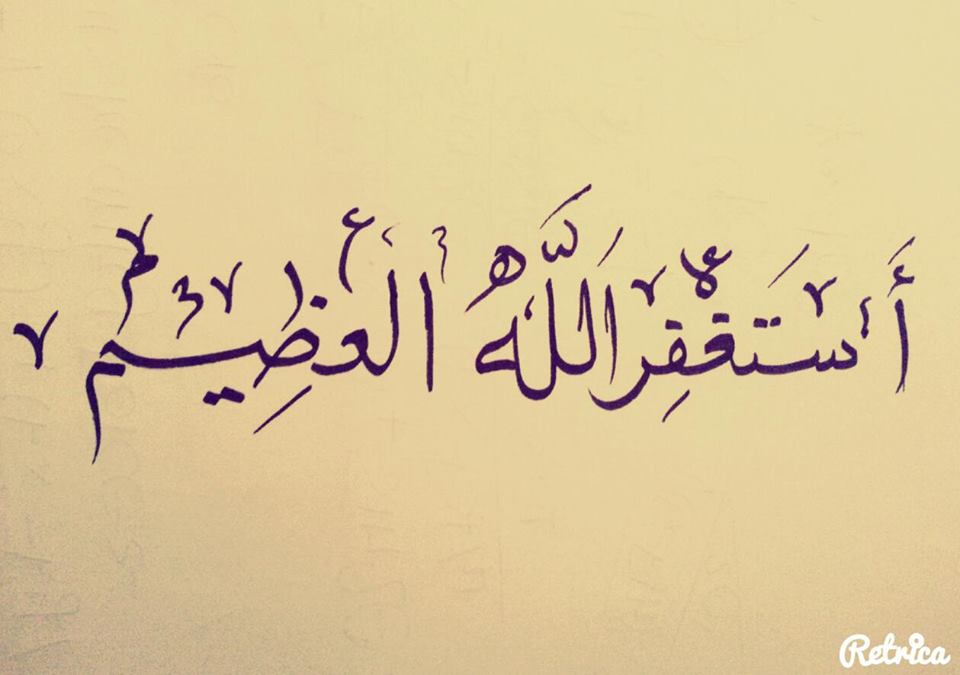 أَستَغفِرُ اللَّهَ العَظِيم
Retrica